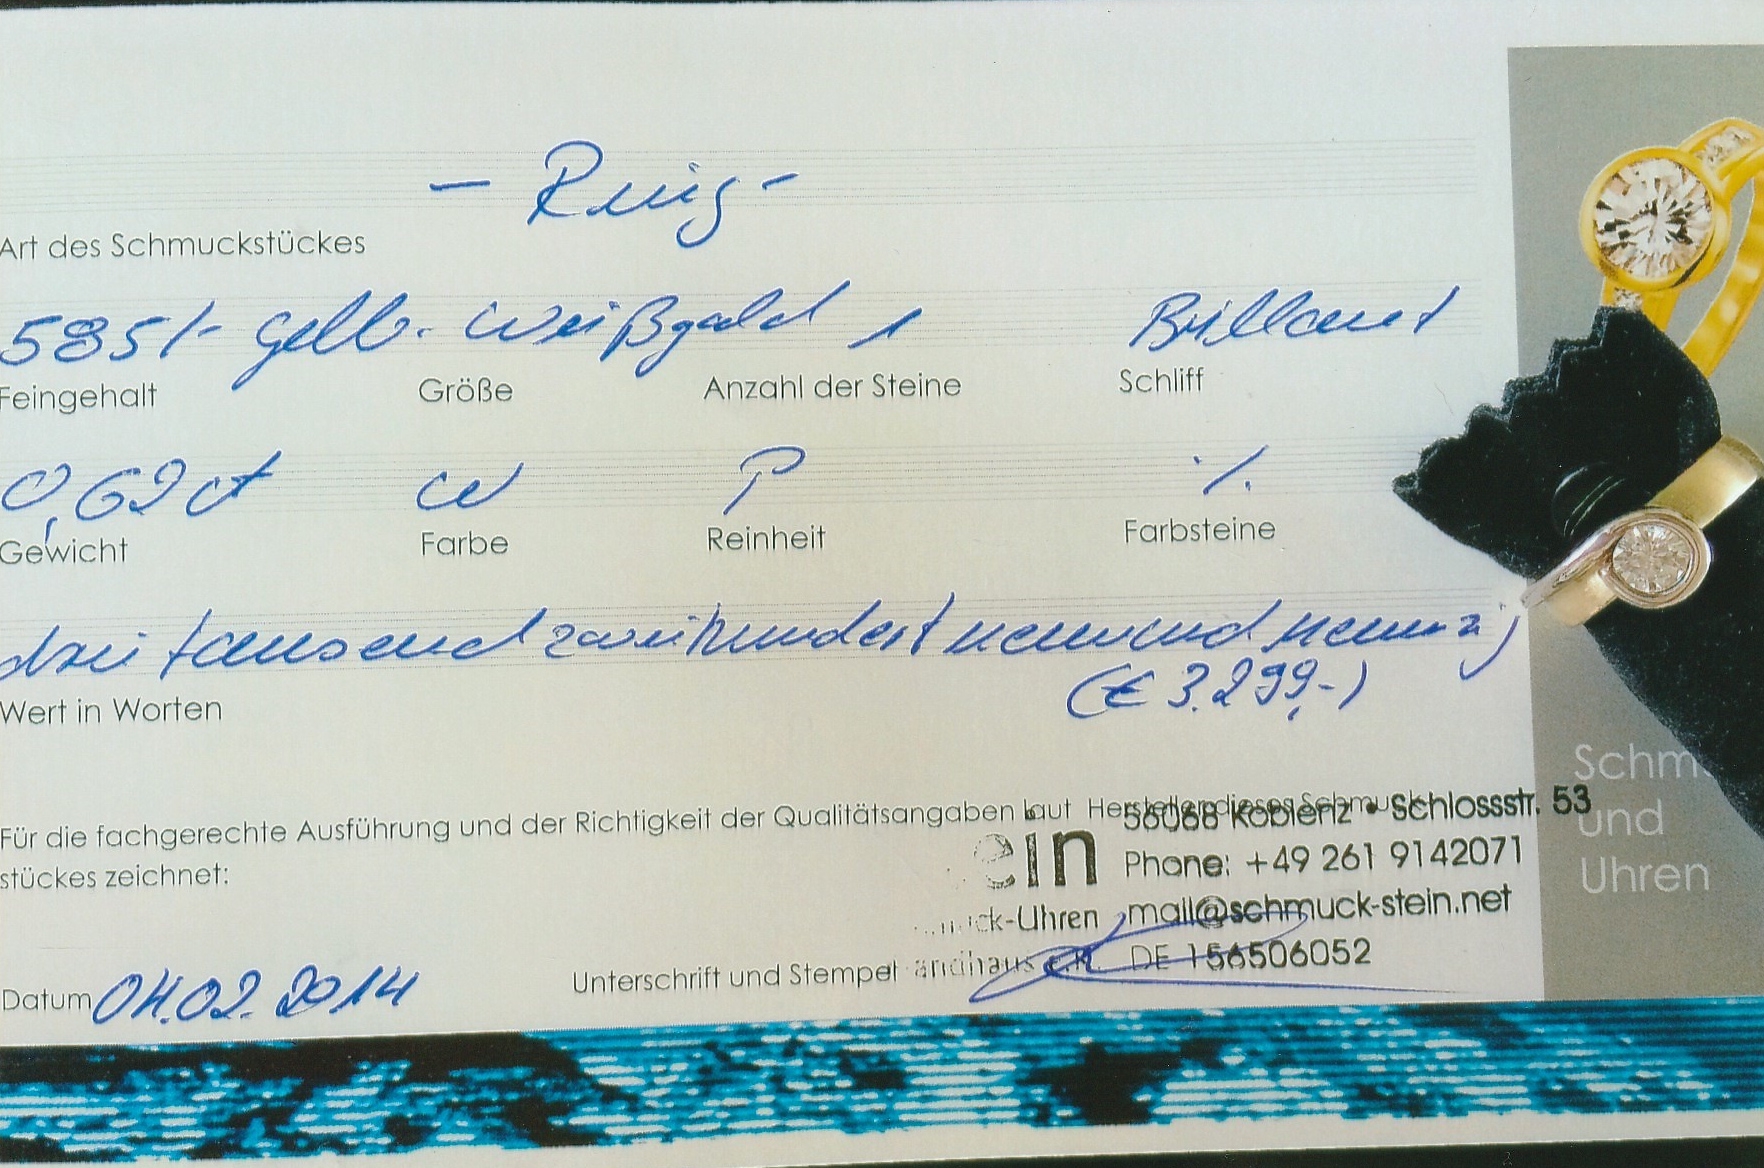 - Ring -
Art des Schmuckstückes
585/- Gelb- Weißgold 1 Brillant
Feingehalt Größe Anzahl der Steine Schliff
0,62 ct W P ./.
Gewicht Farbe Reinheit Farbsteine
drei tausend zweihundert neunundneunzig
(€ 3.299,-)
Wert in Worten
Für die fachgerechte Ausführung und der Richtigkeit der Qualitätsangaben laut Hersteller dieses Schmuck-
stückes zeichnet:
56068 Koblenz • Schlossstr. 53
ein Phone: +49 261 9142071
ck-Uhren mail@schmuck-stein.net
DE 156506052
Datum 04.02.2014 Unterschrift und Stempel
Schm
und
Uhren